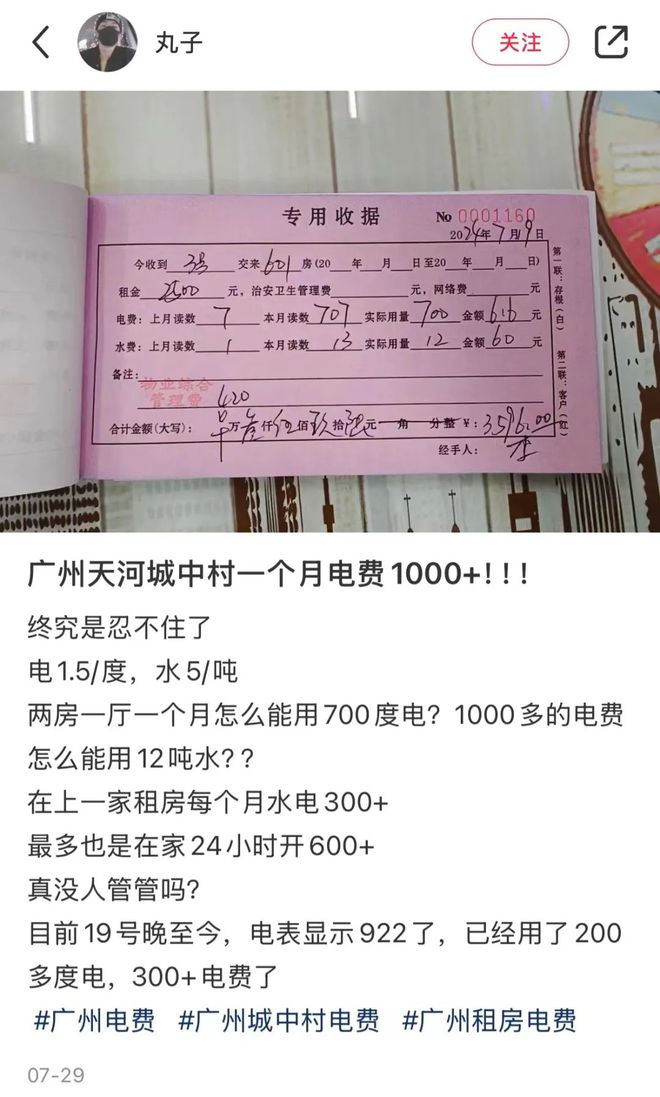 丸子
关注
专用收据
No 0001160
2024年7月19日
今收到 交来601房(20 年 月 日至20 年 月 日)
租金 2500 元，治安卫生管理费 元，网络费 元
电费：上月读数 7 本月读数 707 实际用量 700 金额 616 元
水费：上月读数 1 本月读数 13 实际用量 12 金额 60 元
备注：
物业综合
管理费 420
合计金额(大写)： 万 仟 佰 拾 元 角 分整 ¥：3596.00
经手人：
第一联：存根(白)
第二联：客户(红)
广州天河城中村一个月电费1000+！！！
终究是忍不住了
电1.5/度，水5/吨
两房一厅一个月怎么能用700度电？1000多的电费
怎么能用12吨水？？
在上一家租房每个月水电300+
最多也是在家24小时开600+
真没人管管吗？
目前19号晚至今，电表显示922了，已经用了200
多度电，300+电费了
#广州电费 #广州城中村电费 #广州租房电费
07-29